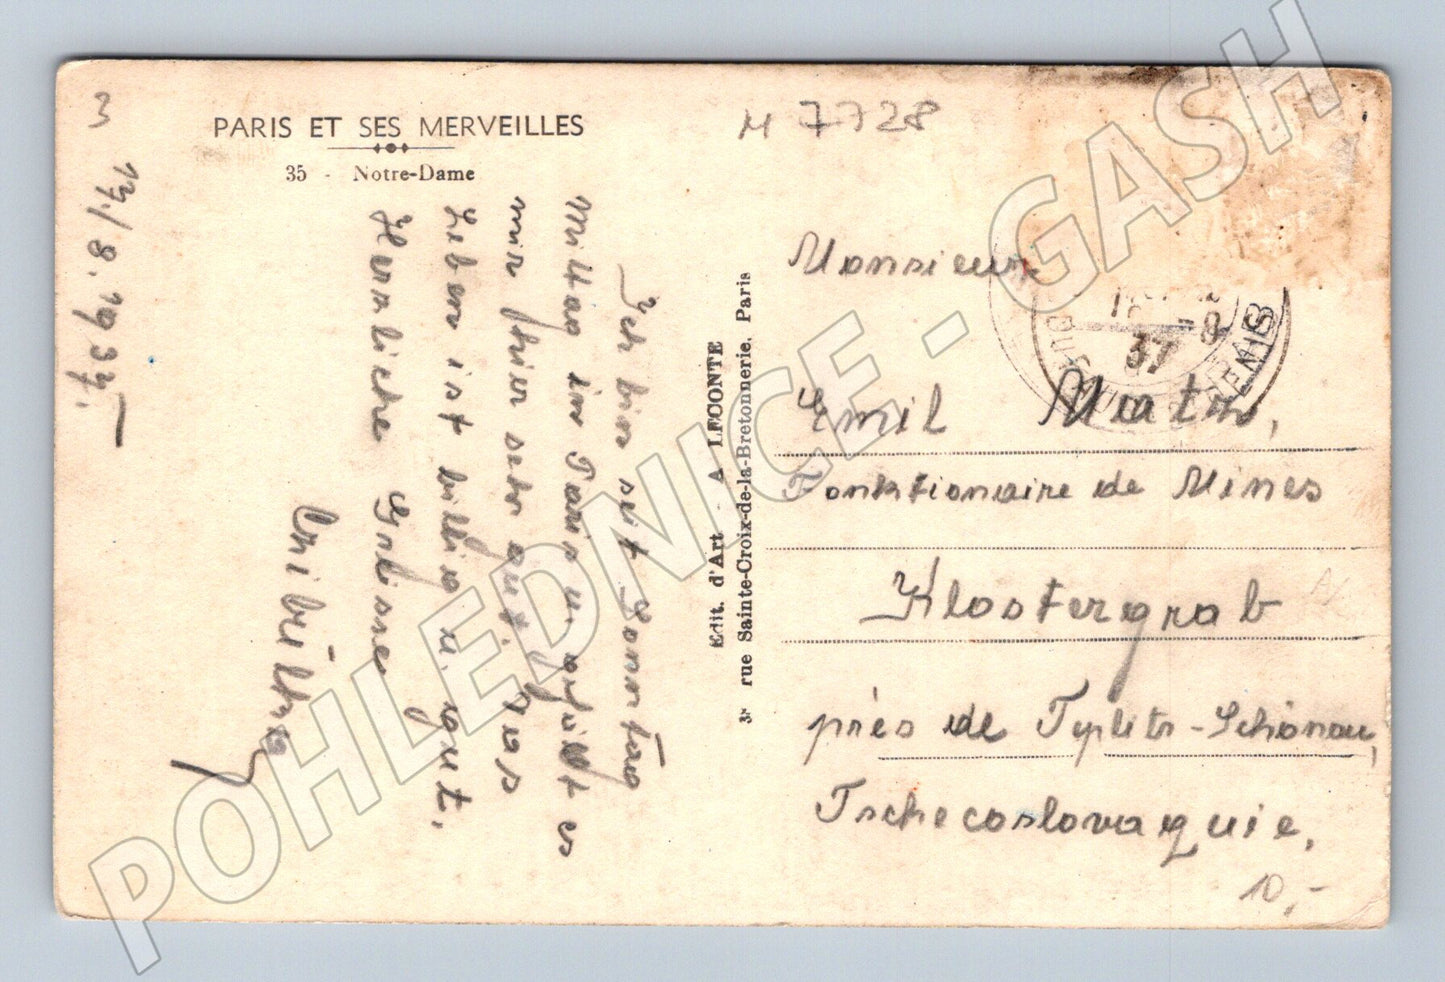 3
PARIS ET SES MERVEILLES
35 - Notre-Dame
17./8.1937.
Ich bin seit Sonntag
Mittag in Paris u. gefällt es
mir hier sehr gut. Das
Leben ist billig u. gut.
Herzliche Grüsse
Edit. d'Art - A LECONTE
38 rue Sainte-Croix-de-la-Bretonnerie, Paris
M 7728
Monsieur
Emil
Fonktionaire de Mines
Klostergrab
près de Teplitz-Schönau,
Tschecoslovaquie.
10,-
18 -8
37
POHLEDNICE - GASH